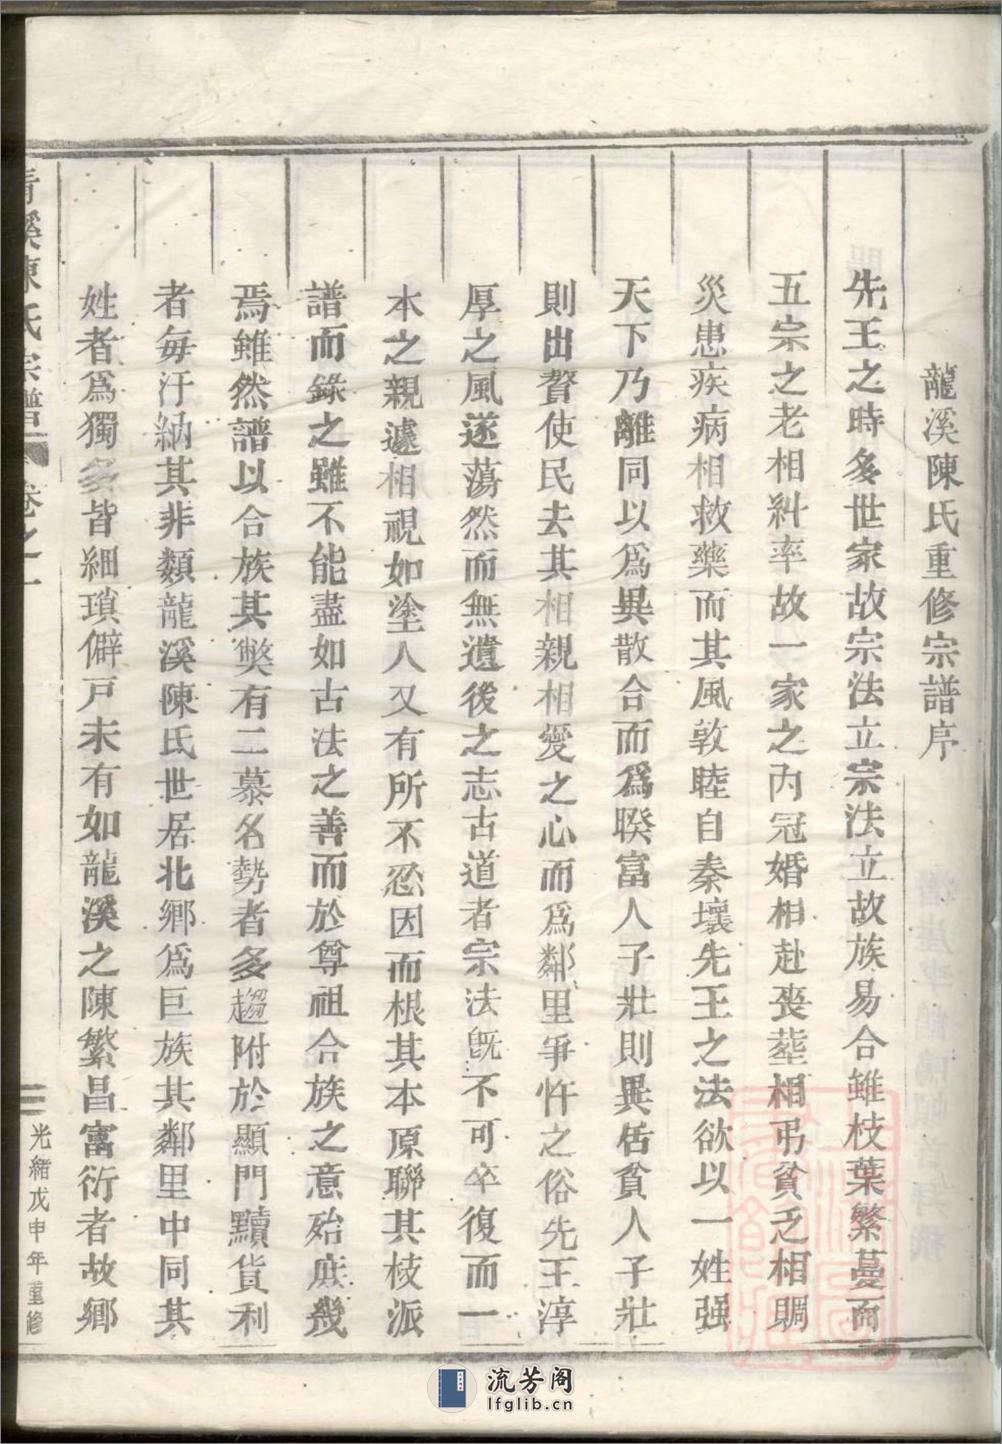 龍溪陳氏重修宗譜序
先王之時多世家故宗法立宗法立故族易合雖枝葉繁蔓而
五宗之老相糾率故一家之內冠婚相赴喪葬相弔貧乏相賙
災患疾病相救藥而其風敦睦自秦壞先王之法欲以一姓强
天下乃離同以爲異散合而爲睽富人子壯則異居貧人子壯
則出贅使民去其相親相愛之心而爲鄰里爭忤之俗先王淳
厚之風遂蕩然而無遺後之志古道者宗法旣不可卒復而一
本之親遽相視如塗人又有所不忍因而根其本原聯其枝派
譜而錄之雖不能盡如古法之善而於尊祖合族之意殆庶幾
焉雖然譜以合族其獘有二慕名勢者多趨附於顯門黷貨利
者每汙納其非類龍溪陳氏世居北鄉爲巨族其鄰里中同其
姓者爲獨多皆細瑣僻戸未有如龍溪之陳繁昌富衍者故鄉
清溪陳氏宗譜 卷之一
二 光緒戊申年重修
流芳阁
lfglib.cn